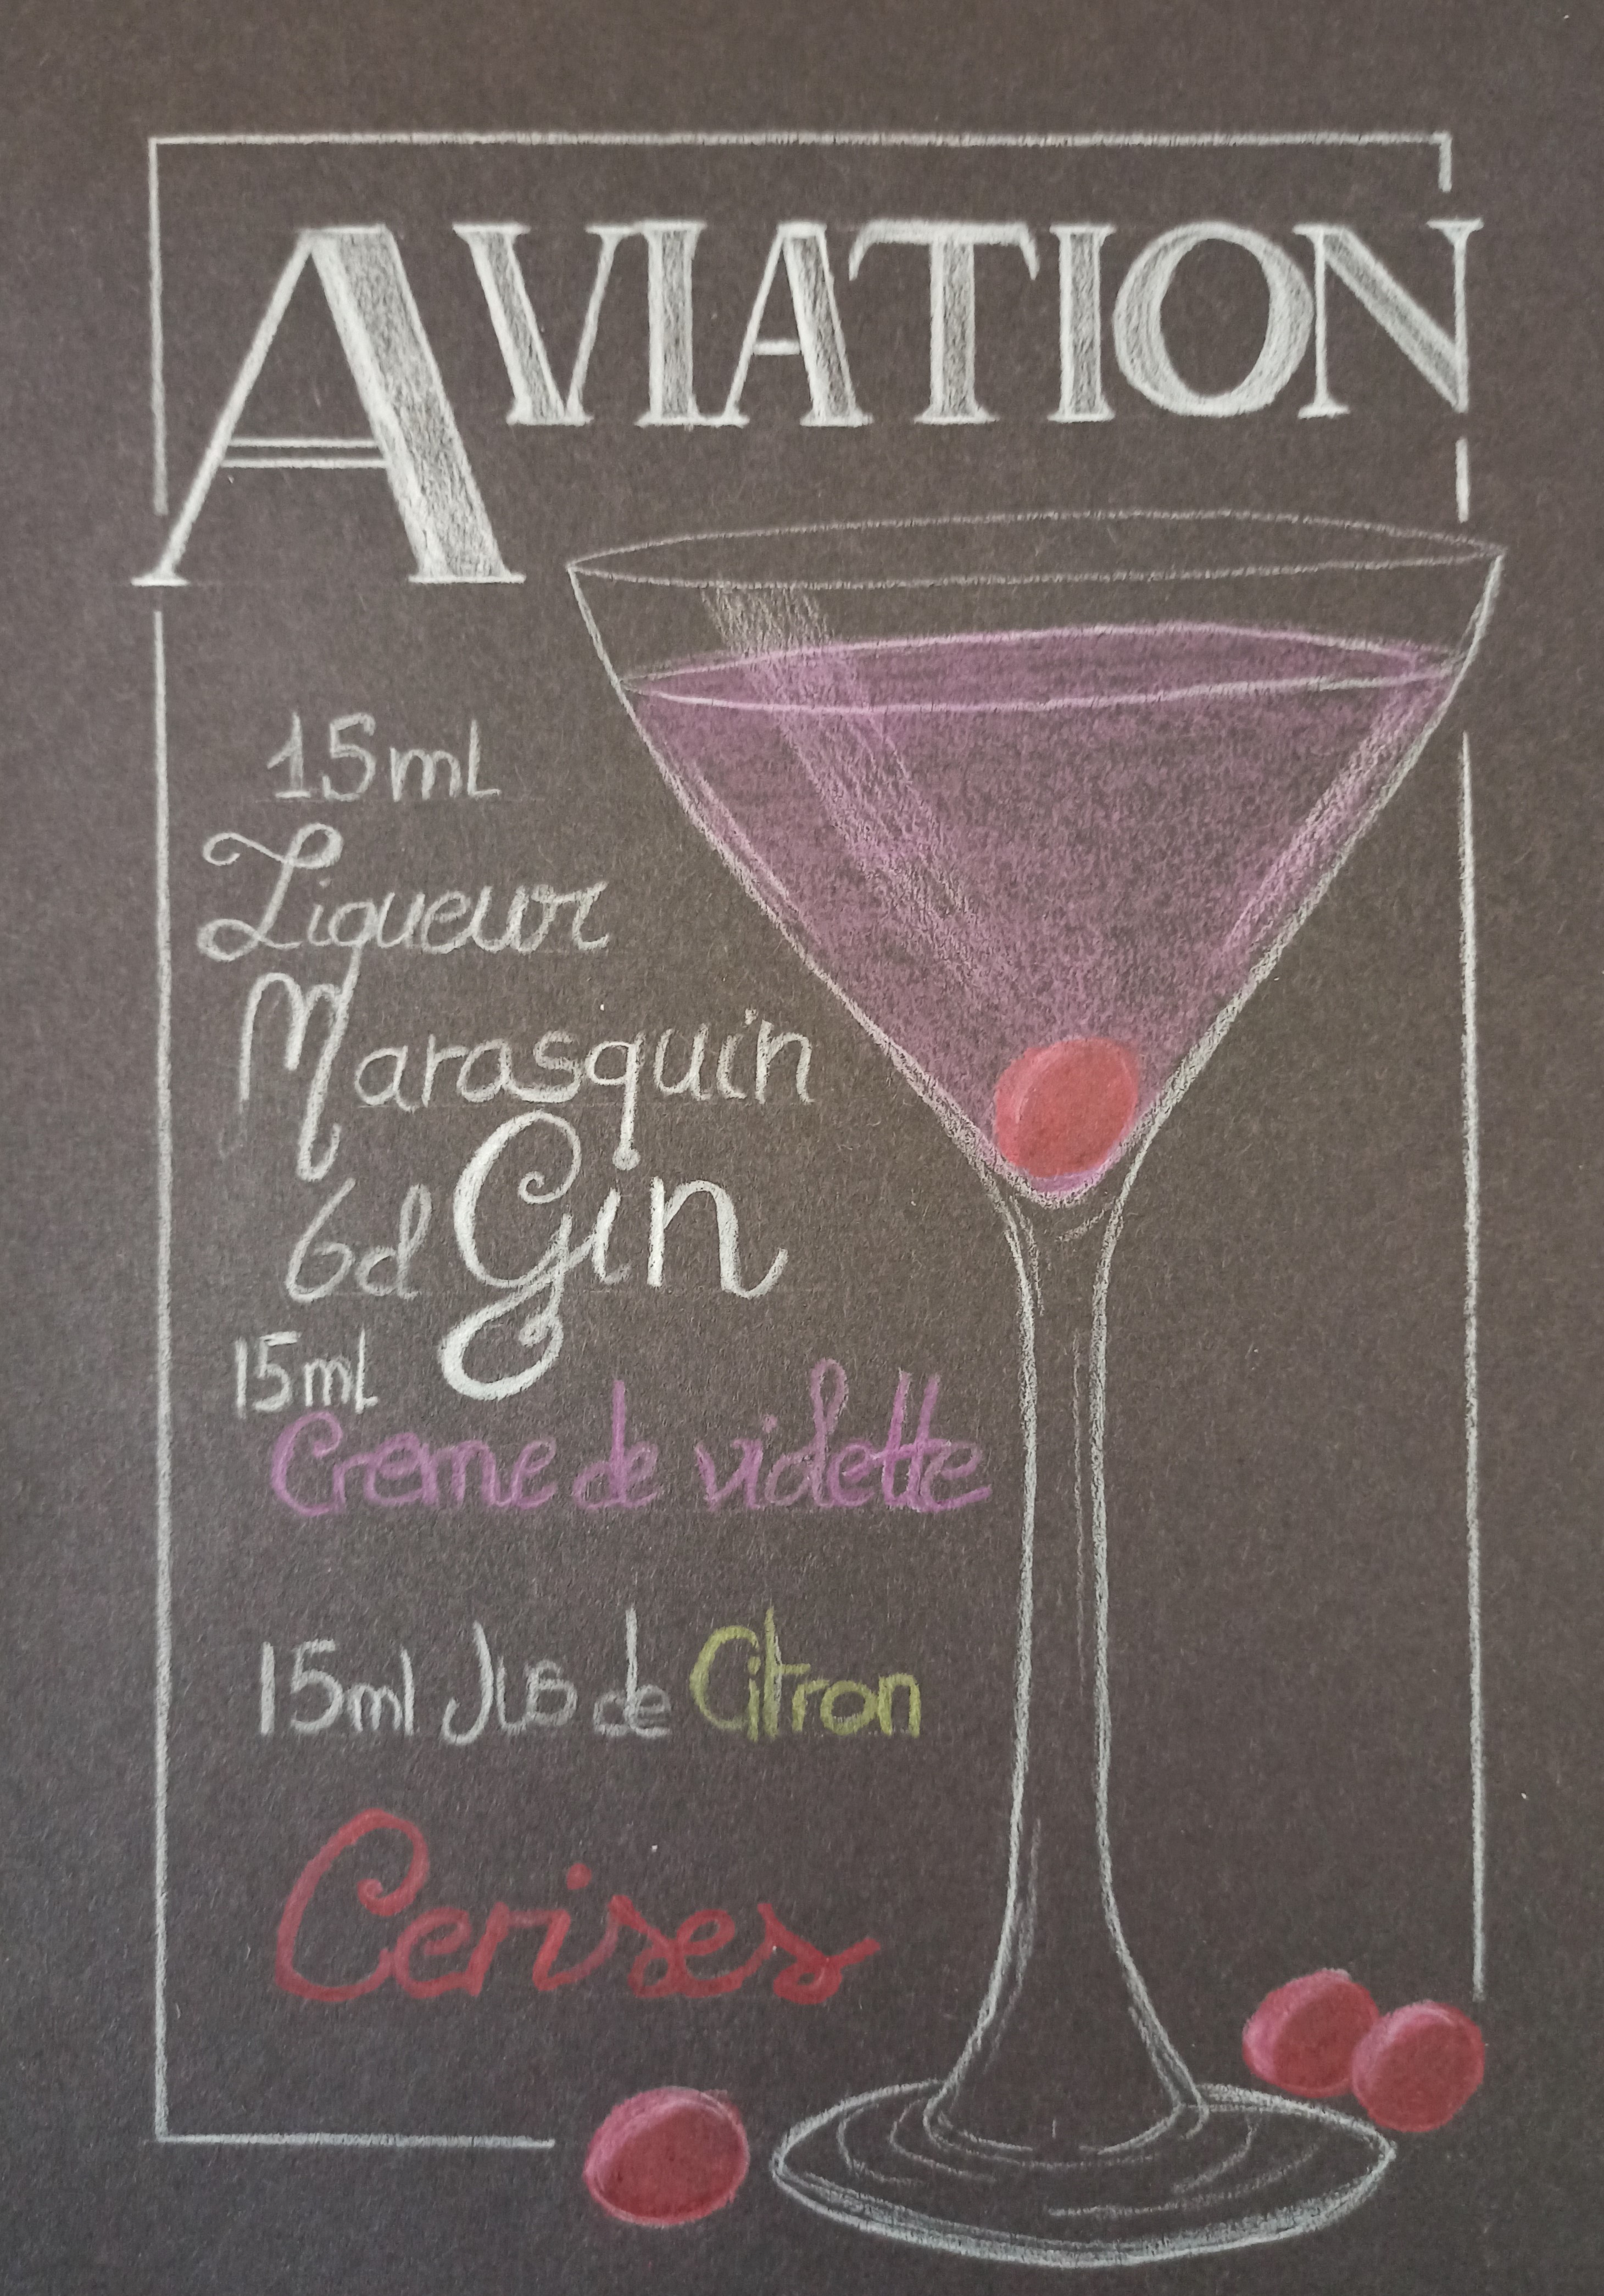 AVIATION
15mL
Liqueur
Marasquin
6cl Gin
15mL
Crème de violette
15ml Jus de Citron
Cerises